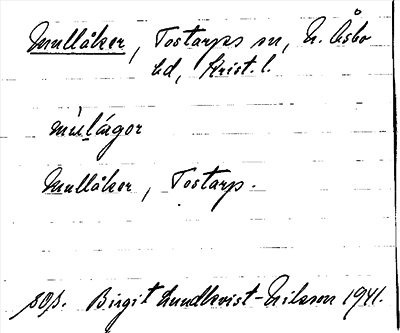 Mullåker, Tostarps sn, N. Åsbo
hd, Krist. l.
mùlágor
Mullåker, Tostarp.
sop. Birgit Lundkvist-Nilsson 1941.